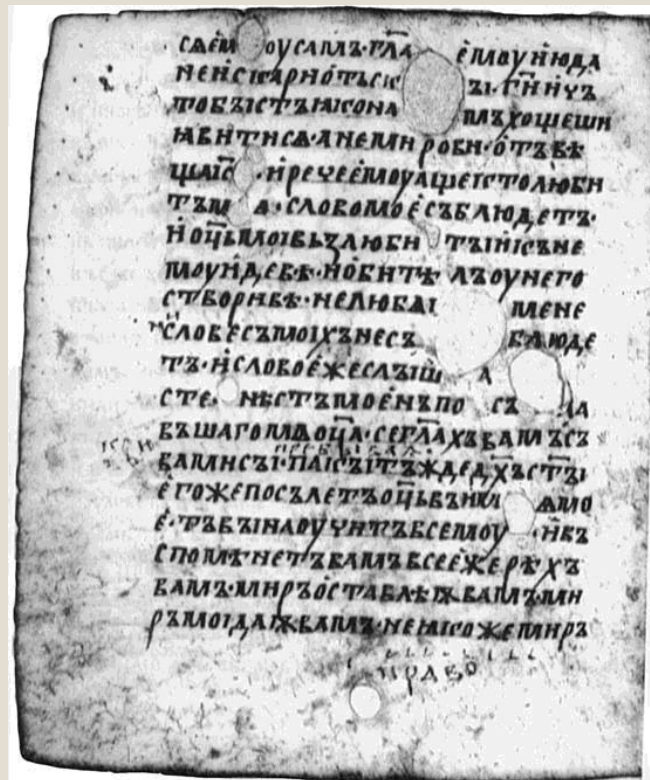 сѧ ем оу самъ· гл҃а емоу июда
не искариотьск ъі· г҃и и чъ
то бъістъ ꙗко на мъ хощеши
ꙗвити сѧ· а не мирови· отъвѣ
ща іс҃ · и рече емоу аще кто люби
тъ м ѧ· слово мое съблюдетъ·
и оц҃ь мои възлюби тъ и и къ не
моу идевѣ· и обитѣ лъ оу него
створивѣ· не любѧі мене
словесъ моіхъ не съ блюде
тъ· и слово еже слъіш а
сте нѣстъ мое нъ по съ ла
въшаго мѧ оц҃а· се гл҃ахъ вамъ съ
вами съі· же дх҃ъ ст҃ъі
егоже посълетъ оц҃ь въ имѧ мо
е· тъ въі наоучитъ всемоу · и въ
спомѣнетъ вамъ все еже рѣхъ
вамъ· миръ оставлѣѭ вамъ· ми
ръ моі даѭ вамъ· не ꙗкоже миръ
право